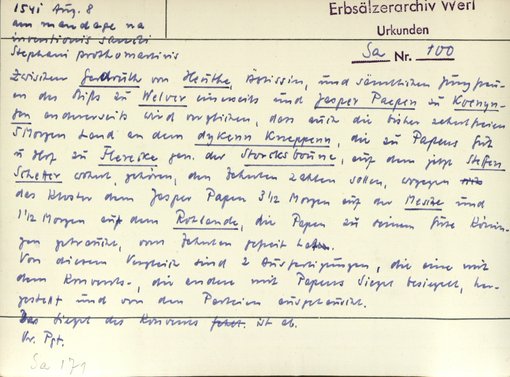 1541 Aug. 8
Erbsälzerarchiv Werl
am mandage na
Urkunden
inventionis sancti
Sa Nr. 100
Stephani prothomartiris
Zwischen Gerdruth von Heithe, Äbtissin, und sämtlichen Jungfrau-
en des Stifts zu Welver einerseits und Jesper Paepen zu Koenyn-
gen andererseits wird verglichen, dass auch die bisher zehntfreien
5 Morgen Land an dem dykenn Kneppenn, die zu Papens Gut
u Hof zu Flerike gen. der Storcksboune, auf dem jetzt Steffen
Scheffer wohnt, gehören, den Zehnten zahlen sollen, wogegen
das Kloster dem Jesper Papen 3 1/2 Morgen auf der Mesche und
1 1/2 Morgen auf dem Rohlande, die Papen zu seinem Gute Könin-
gen gebraucht, vom Zehnten befreit
Von diesem Vergleich sind 2 Ausfertigungen, die eine mit
dem Konvents-, die andere mit Papens Siegel besiegelt, her-
gestellt und von den Parteien ausgetauscht.
Das Siegel des Konvents fehlt. ist ab.
Or. Pgt.
Sa 171